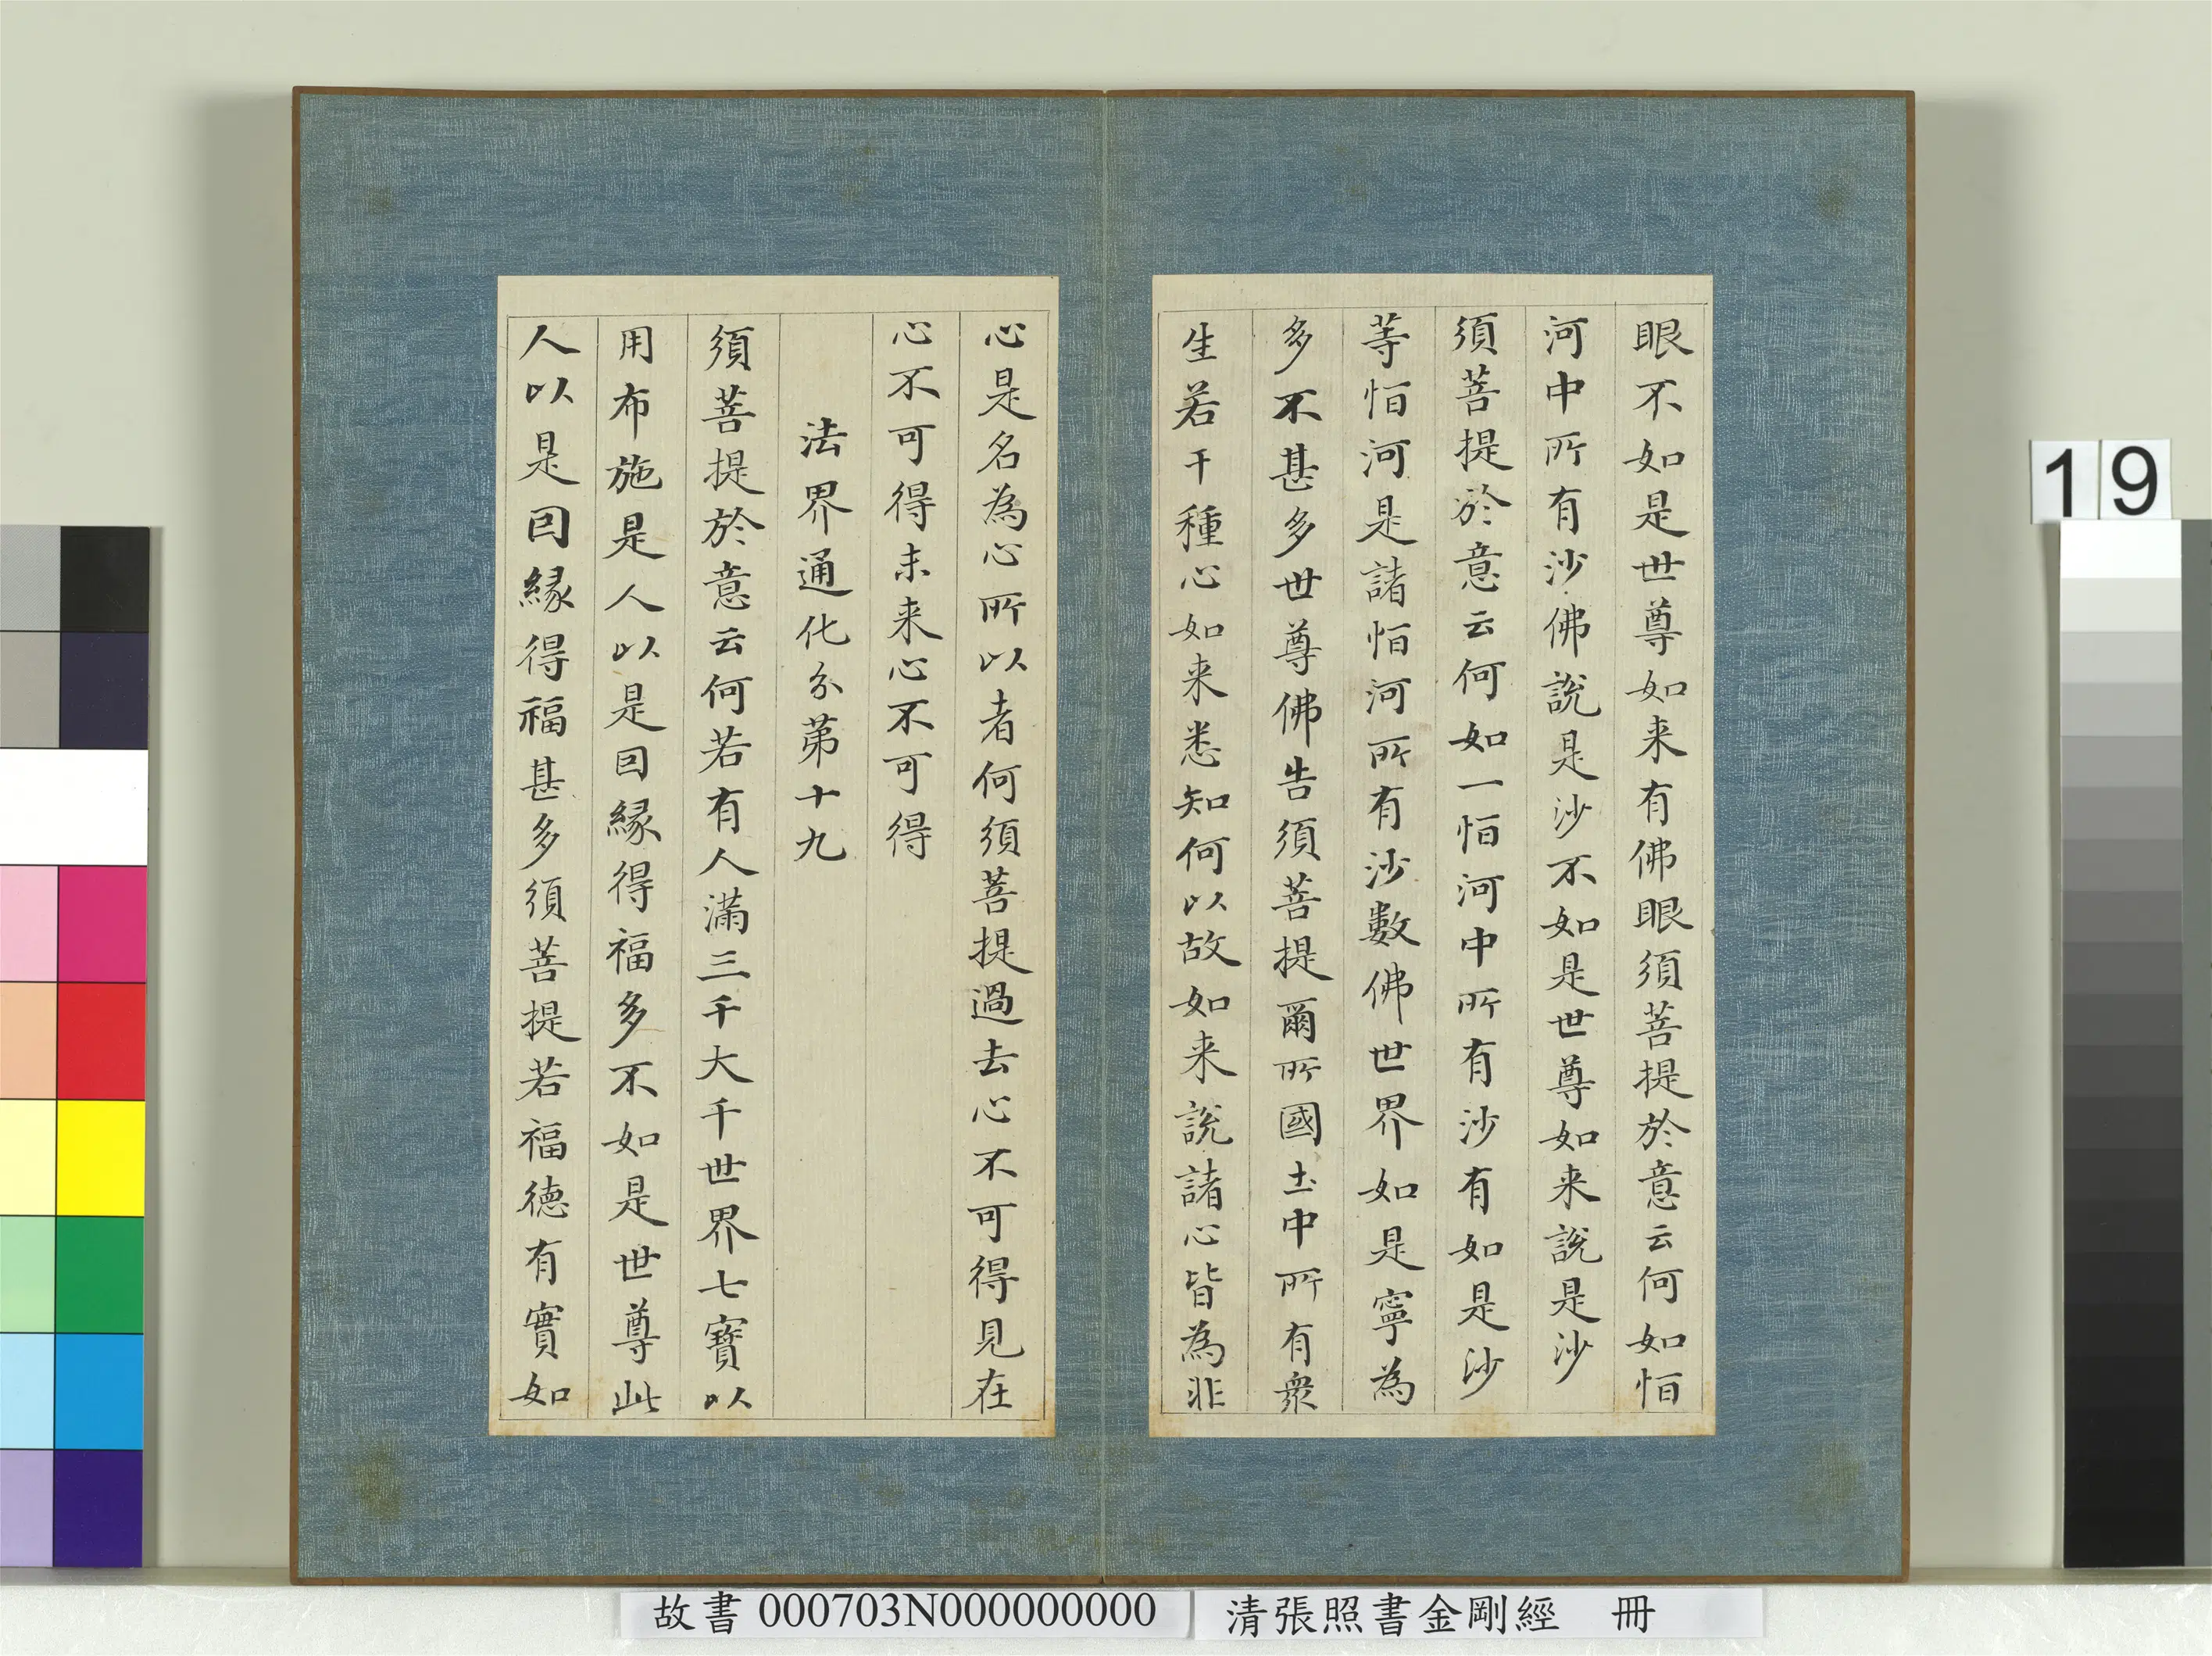 眼不如是世尊如来有佛眼須菩提於意云何如恒
河中所有沙佛說是沙不如是世尊如来說是沙
須菩提於意云何如一恒河中所有沙有如是沙
等恒河是諸恒河所有沙數佛世界如是寧為
多不甚多世尊佛告須菩提爾所國土中所有衆
生若干種心如来悉知何以故如来說諸心皆為非
心是名為心所以者何須菩提過去心不可得見在
心不可得未来心不可得
法界通化分第十九
須菩提於意云何若有人滿三千大千世界七寶以
用布施是人以是因緣得福多不如是世尊此
人以是因緣得福甚多須菩提若福德有實如
19
故書 000703N000000000
清張照書金剛經 冊